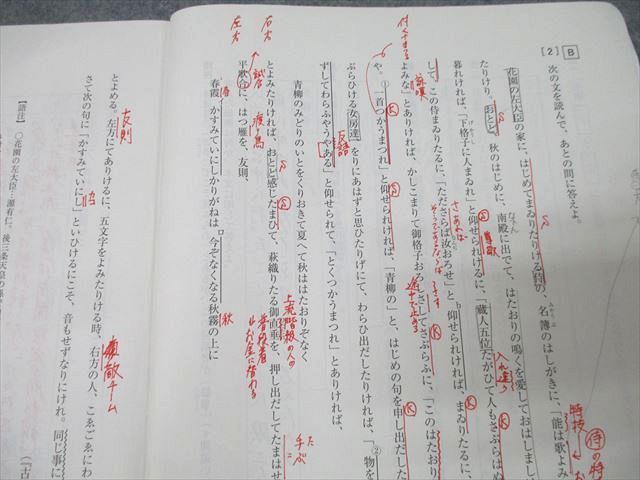 B
[2]
次の文を読んで、あとの問に答えよ。
花園の左大臣の家に、はじめてまゐりたりける侍の、名簿のはしがきに、「能は歌よみ
たりけり。おとど、秋のはじめに、南殿に出でて、はたおりの鳴くを愛しておはしまし
暮れければ、「下格子に人まゐれ」と仰せられけるに、「蔵人五位たがひて人もさぶらはぬ
して、この侍まゐりたるに、「たださらば汝おろせ」と仰せられければ、まゐりたるに、
よみな」とありければ、かしこまりて御格子おろしさしてさぶらふに、「このはたおり
や。①一首つかうまつれ」と仰せられければ、「青柳の」と、はじめの句を申し出だした
ぶらひける女房達、をりにあはずと思ひたりげにて、わらひ出だしたりければ、「②物を
ずしてわらふやうやある」と仰せられて、「とくつかうまつれ」とありければ、
青柳のみどりのいとをくりおきて夏へて秋ははたおりぞなく
とよみたりければ、おとど感じたまひて、萩織りたる御直垂を、押し出だしてたまはせ
平歌合に、はつ雁を、友則、
春霞かすみていにしかりがねは今ぞなくなる秋霧の上に
とよめる。左方にてありけるに、五文字をよみたりける時、右方の人、こゑごゑにわ
さて次の句に「かすみていにし」といひけるにこそ、音もせずなりにけれ。同じ事に
(『古
【語注】
○花園の左大臣…源有仁。後三条天皇の孫
付くする
詠嘆
右方
左方
試合
雁
反語
さあれば
尊敬
途中で止める
入れ違う
特技
侍の特
上流階級の人の
普段着
手ぶ
友則
敵チーム
春
秋